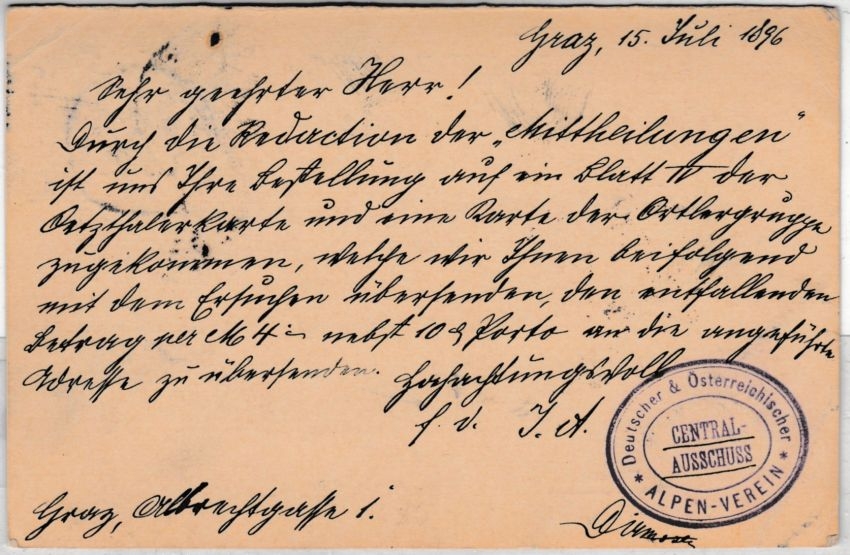 Graz, 15. Juli 1896
Sehr geehrter Herr!
Durch die Redaction der „Mittheilungen“
ist uns Ihre Bestellung auf ein Blatt IV der
Oetzthalerkarte und eine Karte der Ortlergruppe
zugekommen, welche wir Ihnen beifolgend
mit dem Ersuchen übersenden, den entfallenden
Betrag per M 4.- nebst 10 Porto an die angeführte
Adresse zu übersenden.
Hochachtungsvoll
f. d.
Deutscher & Österreichischer
CENTRAL-
AUSSCHUSS
* ALPEN-VEREIN *
Graz, Albrechtgasse 1.